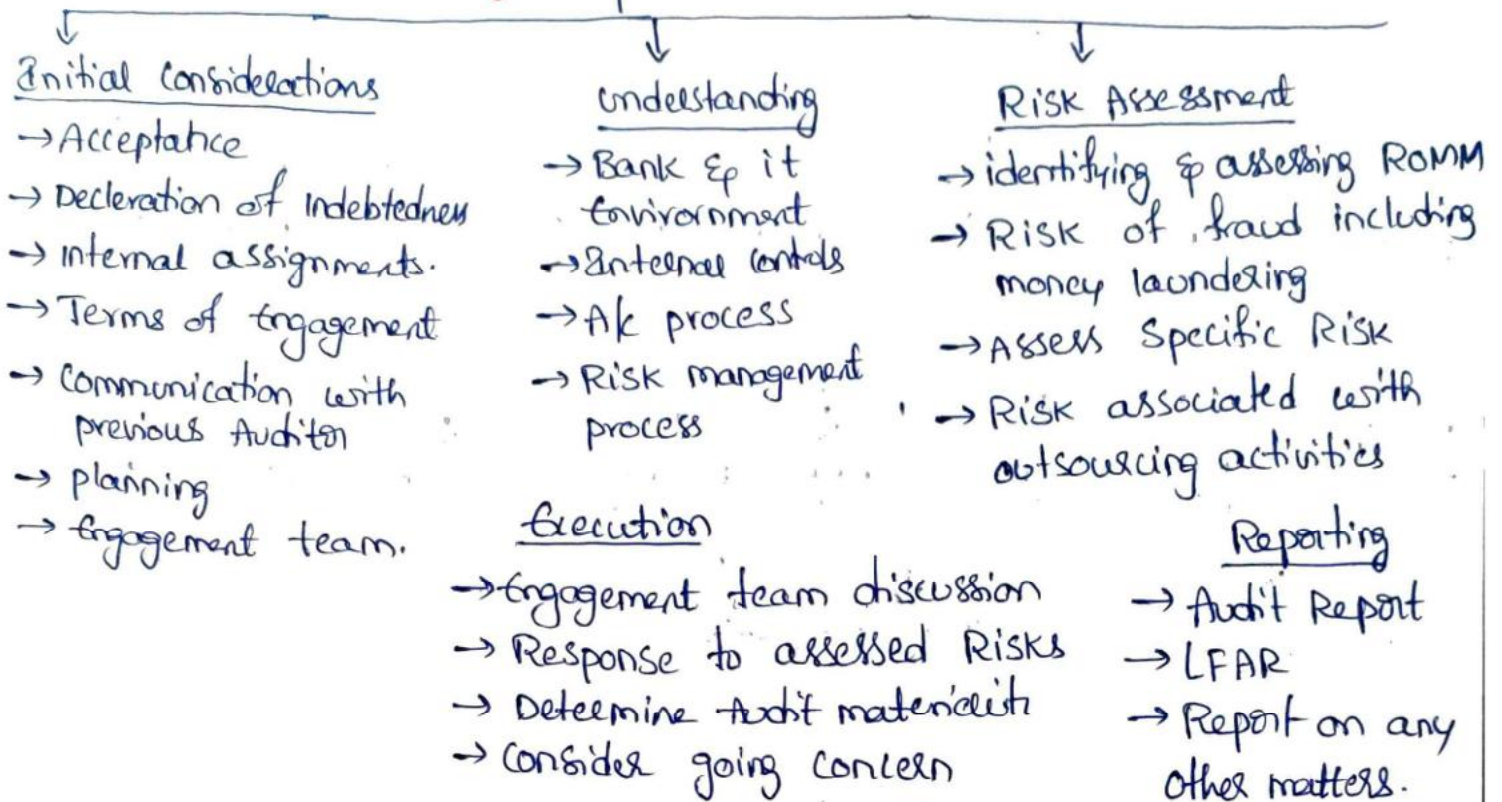 Initial Considerations
→ Acceptance
→ Decleration of indebtedness
→ internal assignments.
→ Terms of Engagement
→ Communication with
previous Auditor
→ planning
→ Engagement team.
Understanding
→ Bank & it
Envirornment
→ Internal Controls
→ A/c process
→ Risk management
process
Risk Assessment
→ identifying & assessing ROMM
→ Risk of fraud including
money laundering
→ Assess Specific Risk
→ Risk associated with
outsourcing activities
Execution
→ Engagement team discussion
→ Response to assessed Risks
→ Determine Audit
→ Consider going concern
Reporting
→ Audit Report
→ LFAR
→ Report on any
other matters.